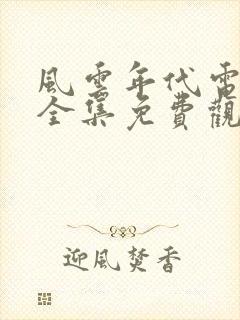 風雲年代電
全集免費觀
迎風焚香